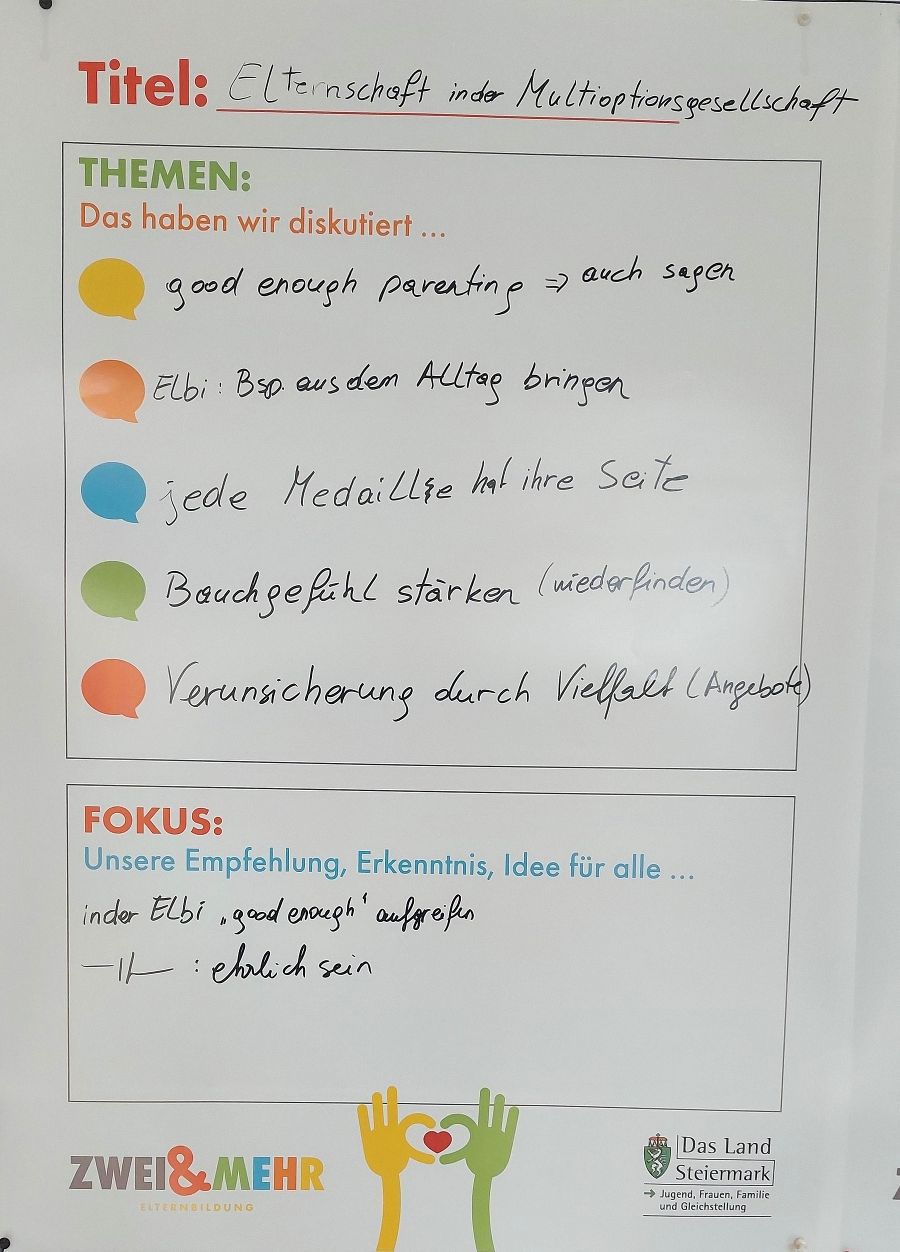 Titel: Elternschaft in der Multioptionsgesellschaft
THEMEN:
Das haben wir diskutiert ...
good enough parenting => auch sagen
Elbi: Bsp. aus dem Alltag bringen
jede Medaille hat ihre Seite
Bauchgefühl stärken (wiederfinden)
Verunsicherung durch Vielfalt (Angebote)
FOKUS:
Unsere Empfehlung, Erkenntnis, Idee für alle ...
in der Elbi „good enough" aufgreifen
—||— : ehrlich sein
ZWEI&MEHR
ELTERNBILDUNG
Das Land
Steiermark
→ Jugend, Frauen, Familie
und Gleichstellung